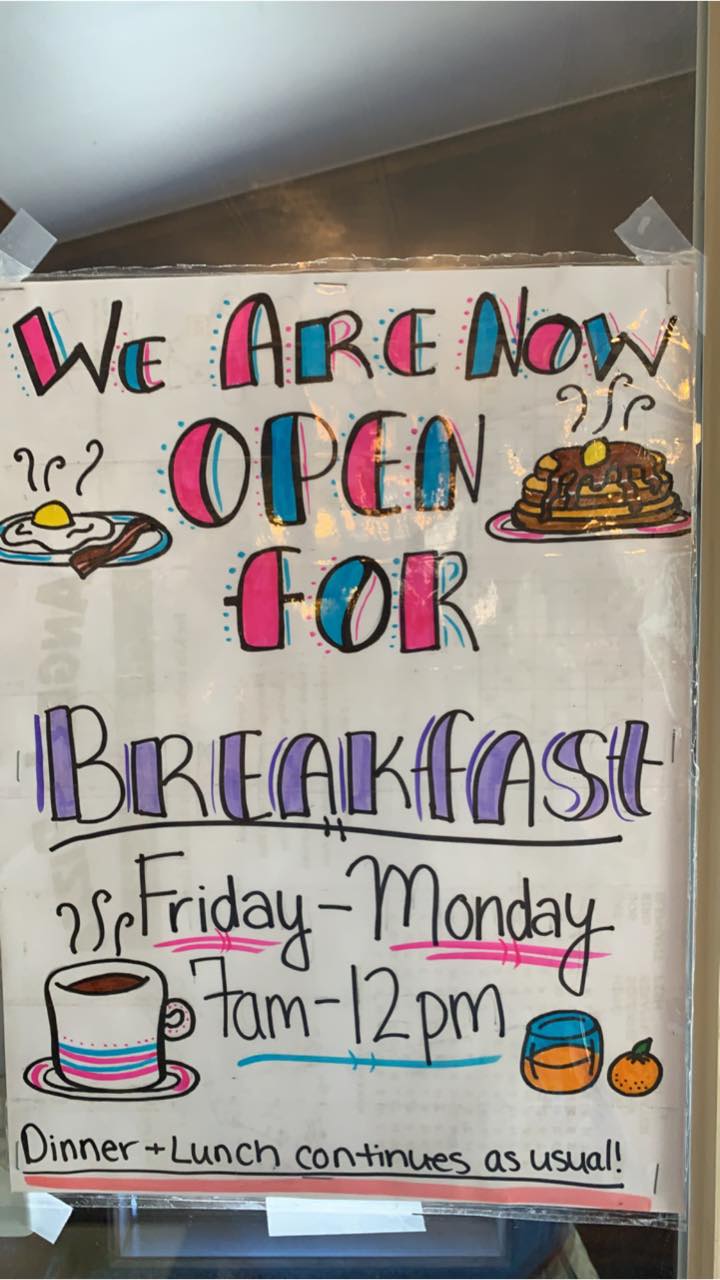 We Are Now
Open
For
Breakfast
Friday - Monday
7am - 12pm
Dinner + Lunch continues as usual!